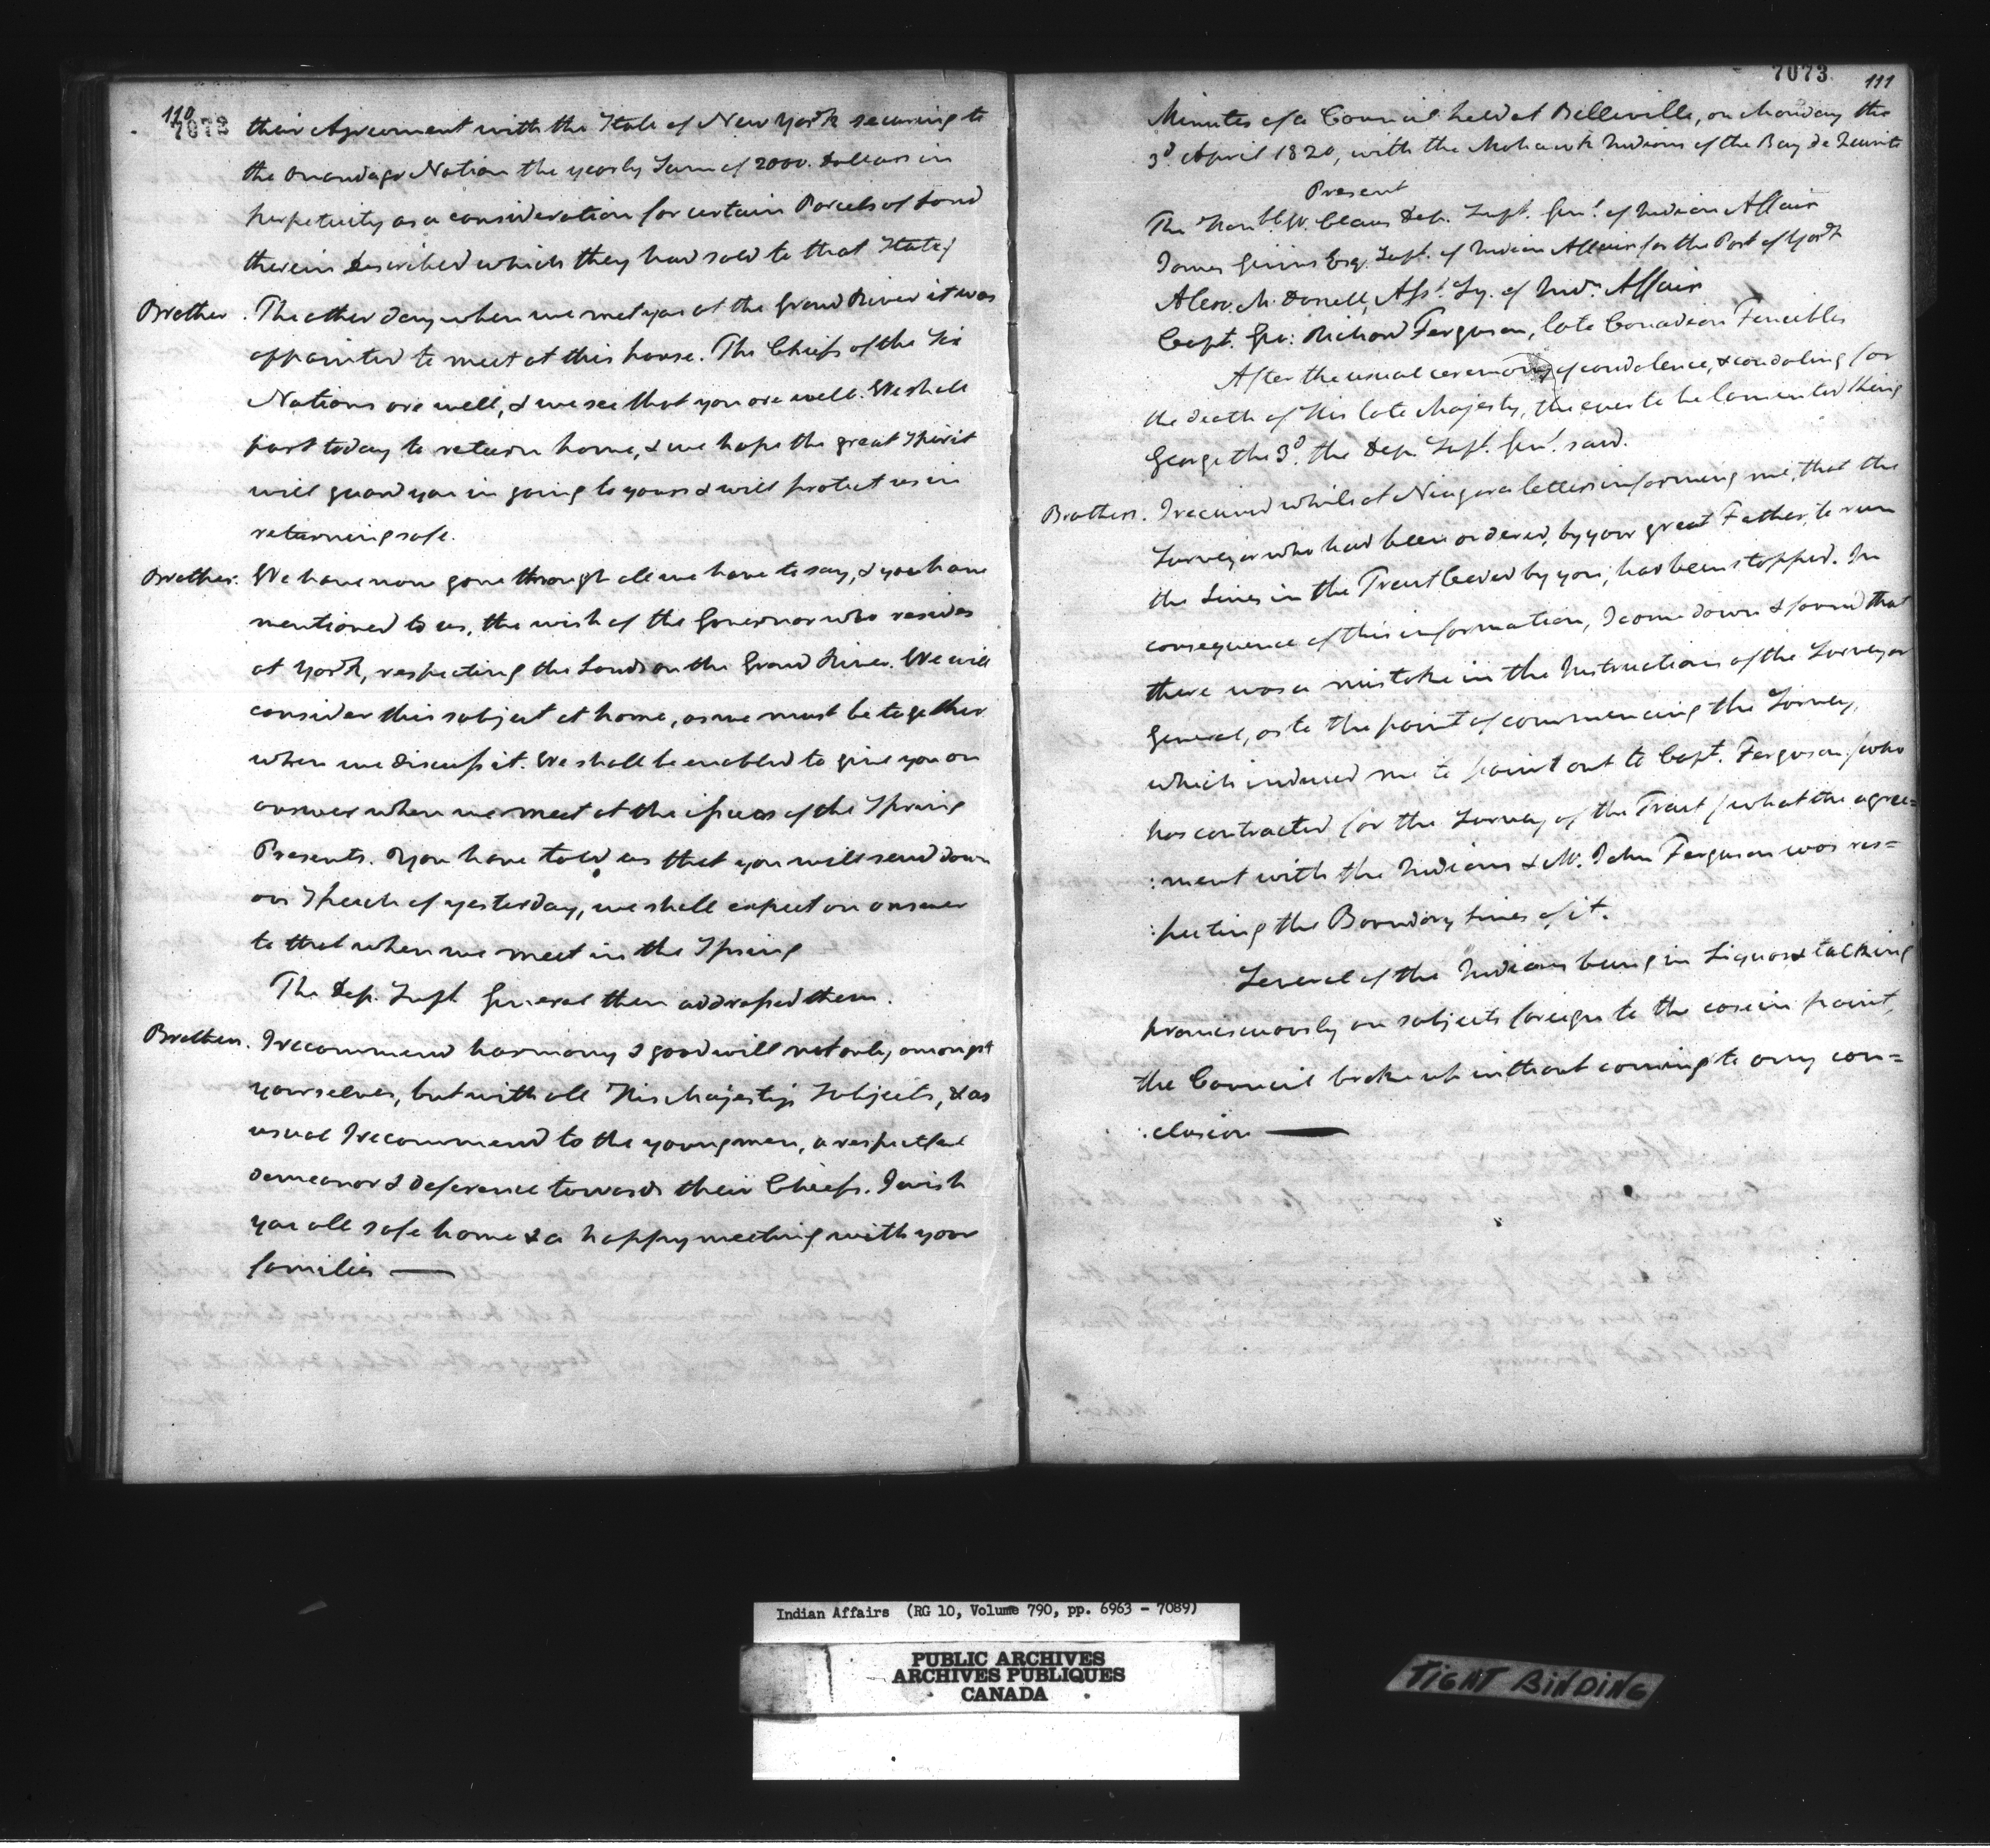 110
7072
their Agreement with the State of New York securing to
the Onondaga Nation the yearly Sum of 2000. Dollars in
perpetuity as a consideration for certain Parcels of Land
therein described which they had sold to that State)
Brother. The other day when we met you at the Grand River it was
appointed to meet at this house. The Chiefs of the Six
Nations are well, & we see that you are well. We shall
part today to return home, & we hope the great Spirit
will guard you in going to yours & will protect us in
returning safe.
Brother. We have now gone through all we have to say, & you have
mentioned to us, the wish of the Governor who resides
at York, respecting the Lands on the Grand River. We will
consider this subject at home, as we must be together
when we discuss it. We shall be enabled to give you an
answer when we meet at the issues of the Spring
Presents. You have told us that you will send down
our Speech of yesterday, we shall expect an answer
to that when we meet in the Spring
The Dep. Supt General then addressed them.
Brothers. I recommend harmony & good will not only amongst
yourselves, but with all His Majesty's Subjects, & as
usual I recommend to the young men, a respectful
demeanor & deference towards their Chiefs. I wish
you all safe home & a happy meeting with your
families —
7073
111
Minutes of a Council held at Belleville, on Monday the
3d April 1820, with the Mohawk Indians of the Bay de Quinté
Present
The Honble. W. Claus Dep. Supt. Genl. of Indian Affairs
James Givins Esq. Supt. of Indian Affairs for the Post of York
Alexr. McDonell, Asst. Sy. of Indn. Affairs
Capt. Geo: Richard Ferguson, late Canadian Fencibles
After the usual ceremony of condolence, & condoling for
the death of His late Majesty, the ever to be lamented King
George the 3d. the Dep. Supt. Genl. said.
Brothers. I received while at Niagara letters informing me, that the
Surveyor who had been ordered, by your great Father, to run
the Lines in the Tract ceded by you, had been stopped. In
consequence of this information, I came down & found that
there was a mistake in the Instructions of the Surveyor
General, as to the point of commencing the Survey,
which induced me to point out to Capt. Ferguson (who
has contracted for the Survey of the Tract) what the agree=
:ment with the Indians & Mr. John Ferguson was res=
:pecting the Boundary Lines of it.
Several of the Indians being in Liquor & talking
promiscuously on subjects foreign to the case in point,
the Council broke up without coming to any con=
:clusion —
Indian Affairs (RG 10, Volume 790, pp. 6963 - 7089)
PUBLIC ARCHIVES
ARCHIVES PUBLIQUES
CANADA
TIGHT BINDING